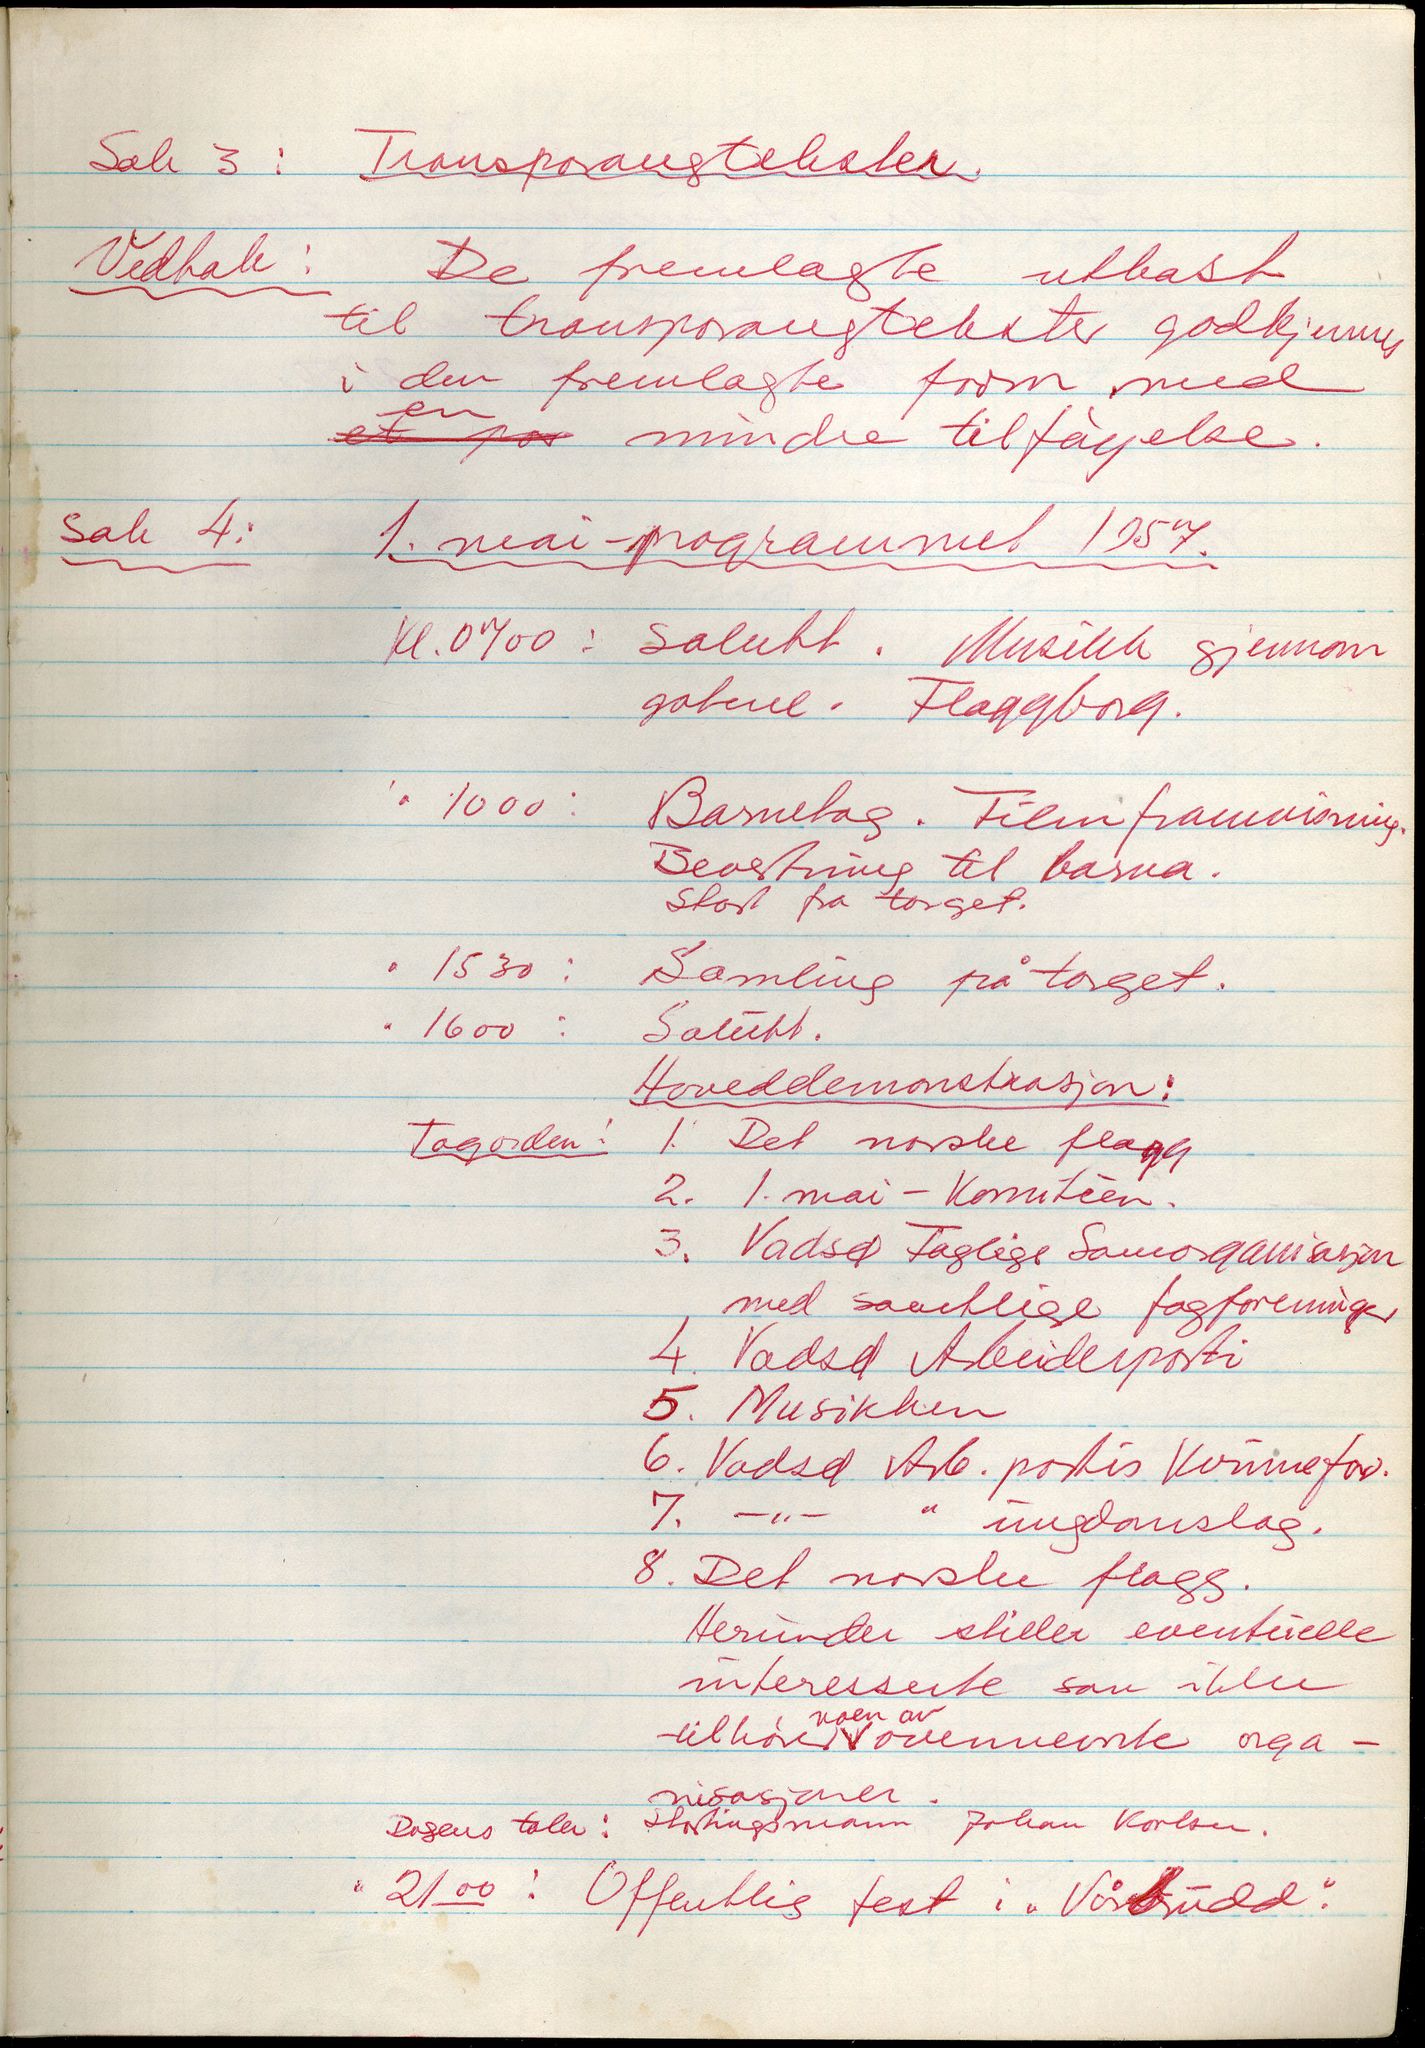 Sak 3: Transparangtekster.
Vedtak: De fremlagte utkast
til transparangtekster godkjennes
i den fremlagte form med
en
et par mindre tilføyelse.
Sak 4: 1. mai-programmet 1957.
Kl. 0700: Salutt. Musikk gjennom
gatene. Flaggborg.
" 1000: Barnetog. Filmframvisning.
Bevertning til barna.
Start fra torget.
" 1530: Samling på torget.
" 1600: Salutt.
Hoveddemonstrasjon:
Togorden: 1. Det norske flagg
2. 1. mai-Komitéen.
3. Vadsø Faglige Samorganisasjon
med samtlige fagforeninger
4. Vadsø Arbeiderparti
5. Musikken
6. Vadsø Arb. partis Kvinnefor.
7. -"- " ungdomslag.
8. Det norske flagg.
Herunder stiller eventuelle
interesserte som ikke
noen av
tilhører ovennevnte orga-
nisasjoner.
Dagens taler: Stortingsmann Johan Karlsen.
" 2100: Offentlig fest i "Vårbrudd".